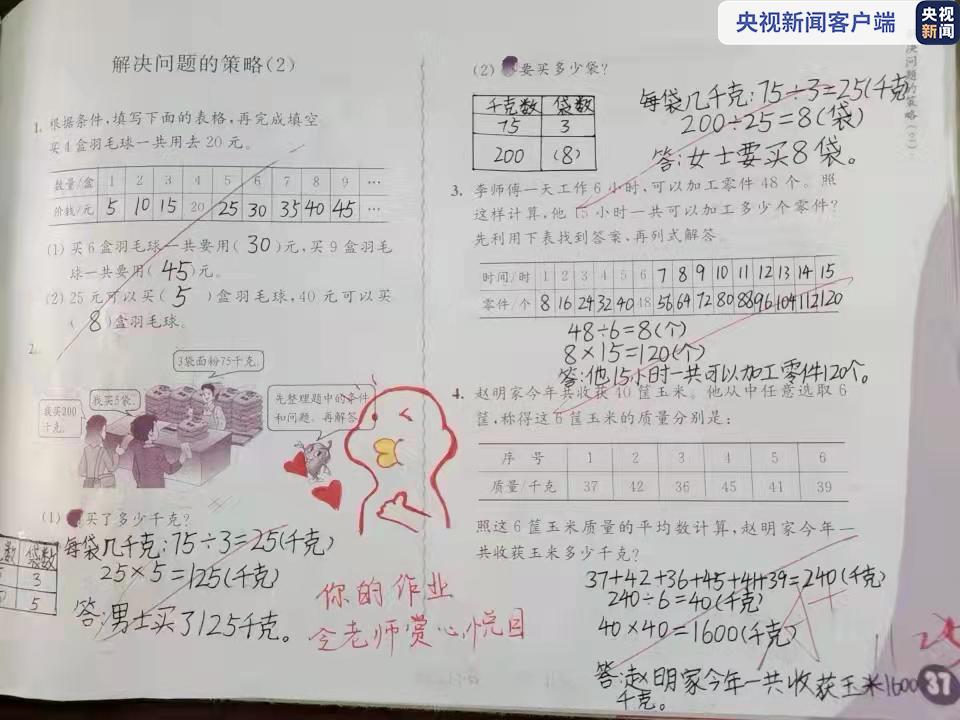 央视新闻客户端
央视
新闻
解决问题的策略(2)
1. 根据条件,填写下面的表格,再完成填空
买4盒羽毛球一共用去20元。
数量/盒 1 2 3 4 5 6 7 8 9 …
价钱/元 5 10 15 20 25 30 35 40 45 …
(1) 买6盒羽毛球一共要用( 30 )元,买9盒羽毛
球一共要用( 45 )元。
(2) 25元可以买( 5 )盒羽毛球,40元可以买
( 8 )盒羽毛球。
2.
3袋面粉75千克。
我买200
千克。
我买5袋。
先整理题中的条件
和问题,再解答
(1) 买了多少千克?
每袋几千克:75÷3=25(千克)
25×5=125(千克)
数 袋数
3
5
答:男士买了125千克。
你的作业
令老师赏心悦目
(2) 要买多少袋?
千克数 袋数
75 3
200 (8)
每袋几千克:75÷3=25(千克
200÷25=8(袋)
答:女士要买8袋。
3. 李师傅一天工作6小时,可以加工零件48个。照
这样计算,他15小时一共可以加工多少个零件?
先利用下表找到答案,再列式解答。
时间/时 1 2 3 4 5 6 7 8 9 10 11 12 13 14 15
零件/个 8 16 24 32 40 48 56 64 72 80 88 96 104 112 120
48÷6=8(个)
8×15=120(个)
答:他15小时一共可以加工零件120个。
4. 赵明家今年共收获40筐玉米。他从中任意选取6
筐,称得这6筐玉米的质量分别是:
序号 1 2 3 4 5 6
质量/千克 37 42 36 45 41 39
照这6筐玉米质量的平均数计算,赵明家今年一
共收获玉米多少千克?
37+42+36+45+41+39=240(千克)
240÷6=40(千克)
40×40=1600(千克)
A+
答:赵明家今年一共收获玉米1600
千克。
37